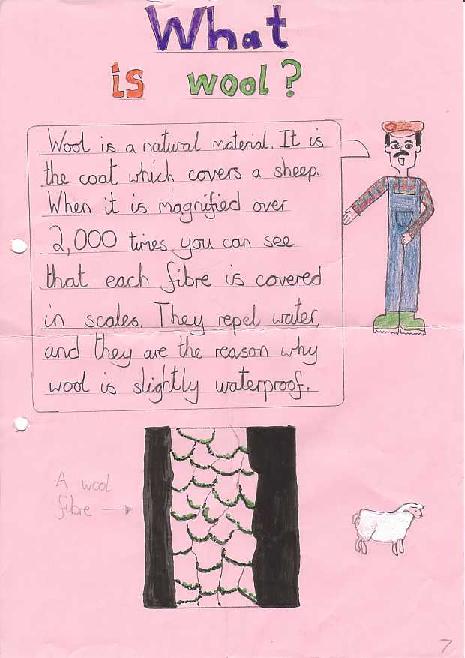 What
is wool?
Wool is a natural material. It is
the coat which covers a sheep.
When it is magnified over
2,000 times you can see
that each fibre is covered
in scales. They repel water,
and they are the reason why
wool is slightly waterproof.
A wool
fibre
7